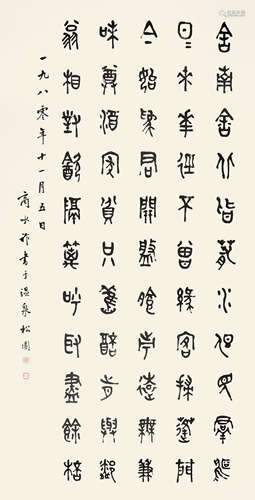 舍南舍北皆春水但見群鷗
日=來華徑不曾緣客掃蓬門
今始為君開盤飧市遠無兼
味尊酒家貧只舊醅肯與鄰
翁相對飲隔籬呼取盡餘杯
一九八零年十一月五日
商承祚書于溫泉松園